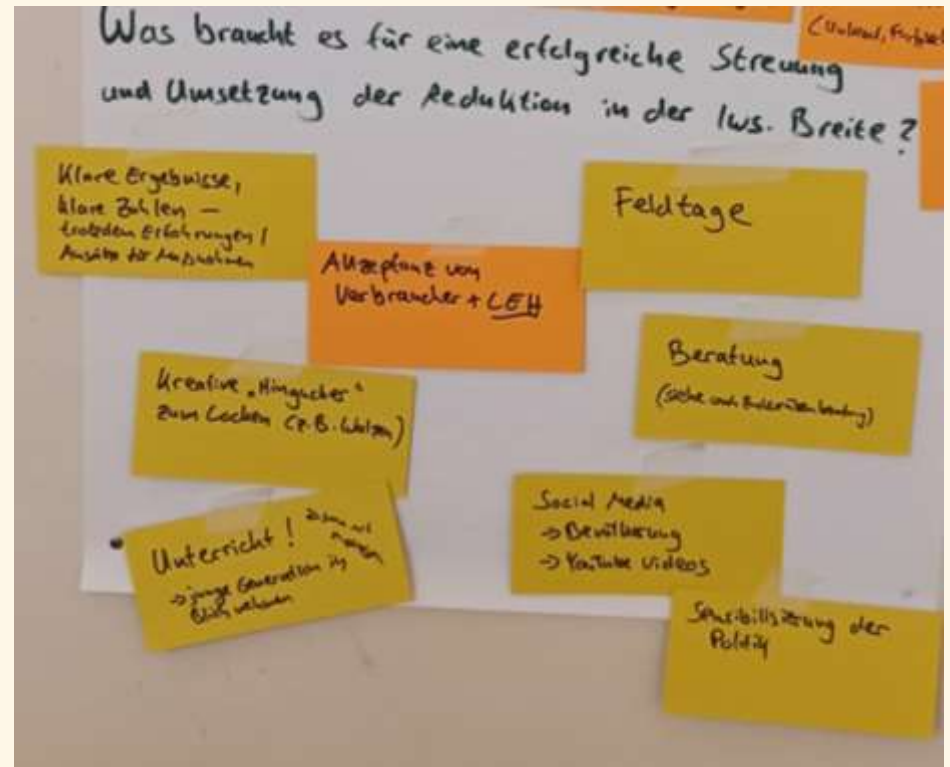 Was braucht es für eine erfolgreiche Streuung
und Umsetzung der Reduktion in der lws. Breite?
Klare Ergebnisse,
klare Zahlen –
trotzdem Erfahrungen /
Ansätze der Maßnahmen
Akzeptanz von
Verbraucher + LEH
Feldtage
Beratung
(siehe auch
Kreative „Hingucker“
zum Locken (z.B. Walzen)
Social Media
→ Bevölkerung
→ YouTube Videos
Unterricht!
→ junge Generation in
Blick nehmen
Sensibilisierung der
Politik